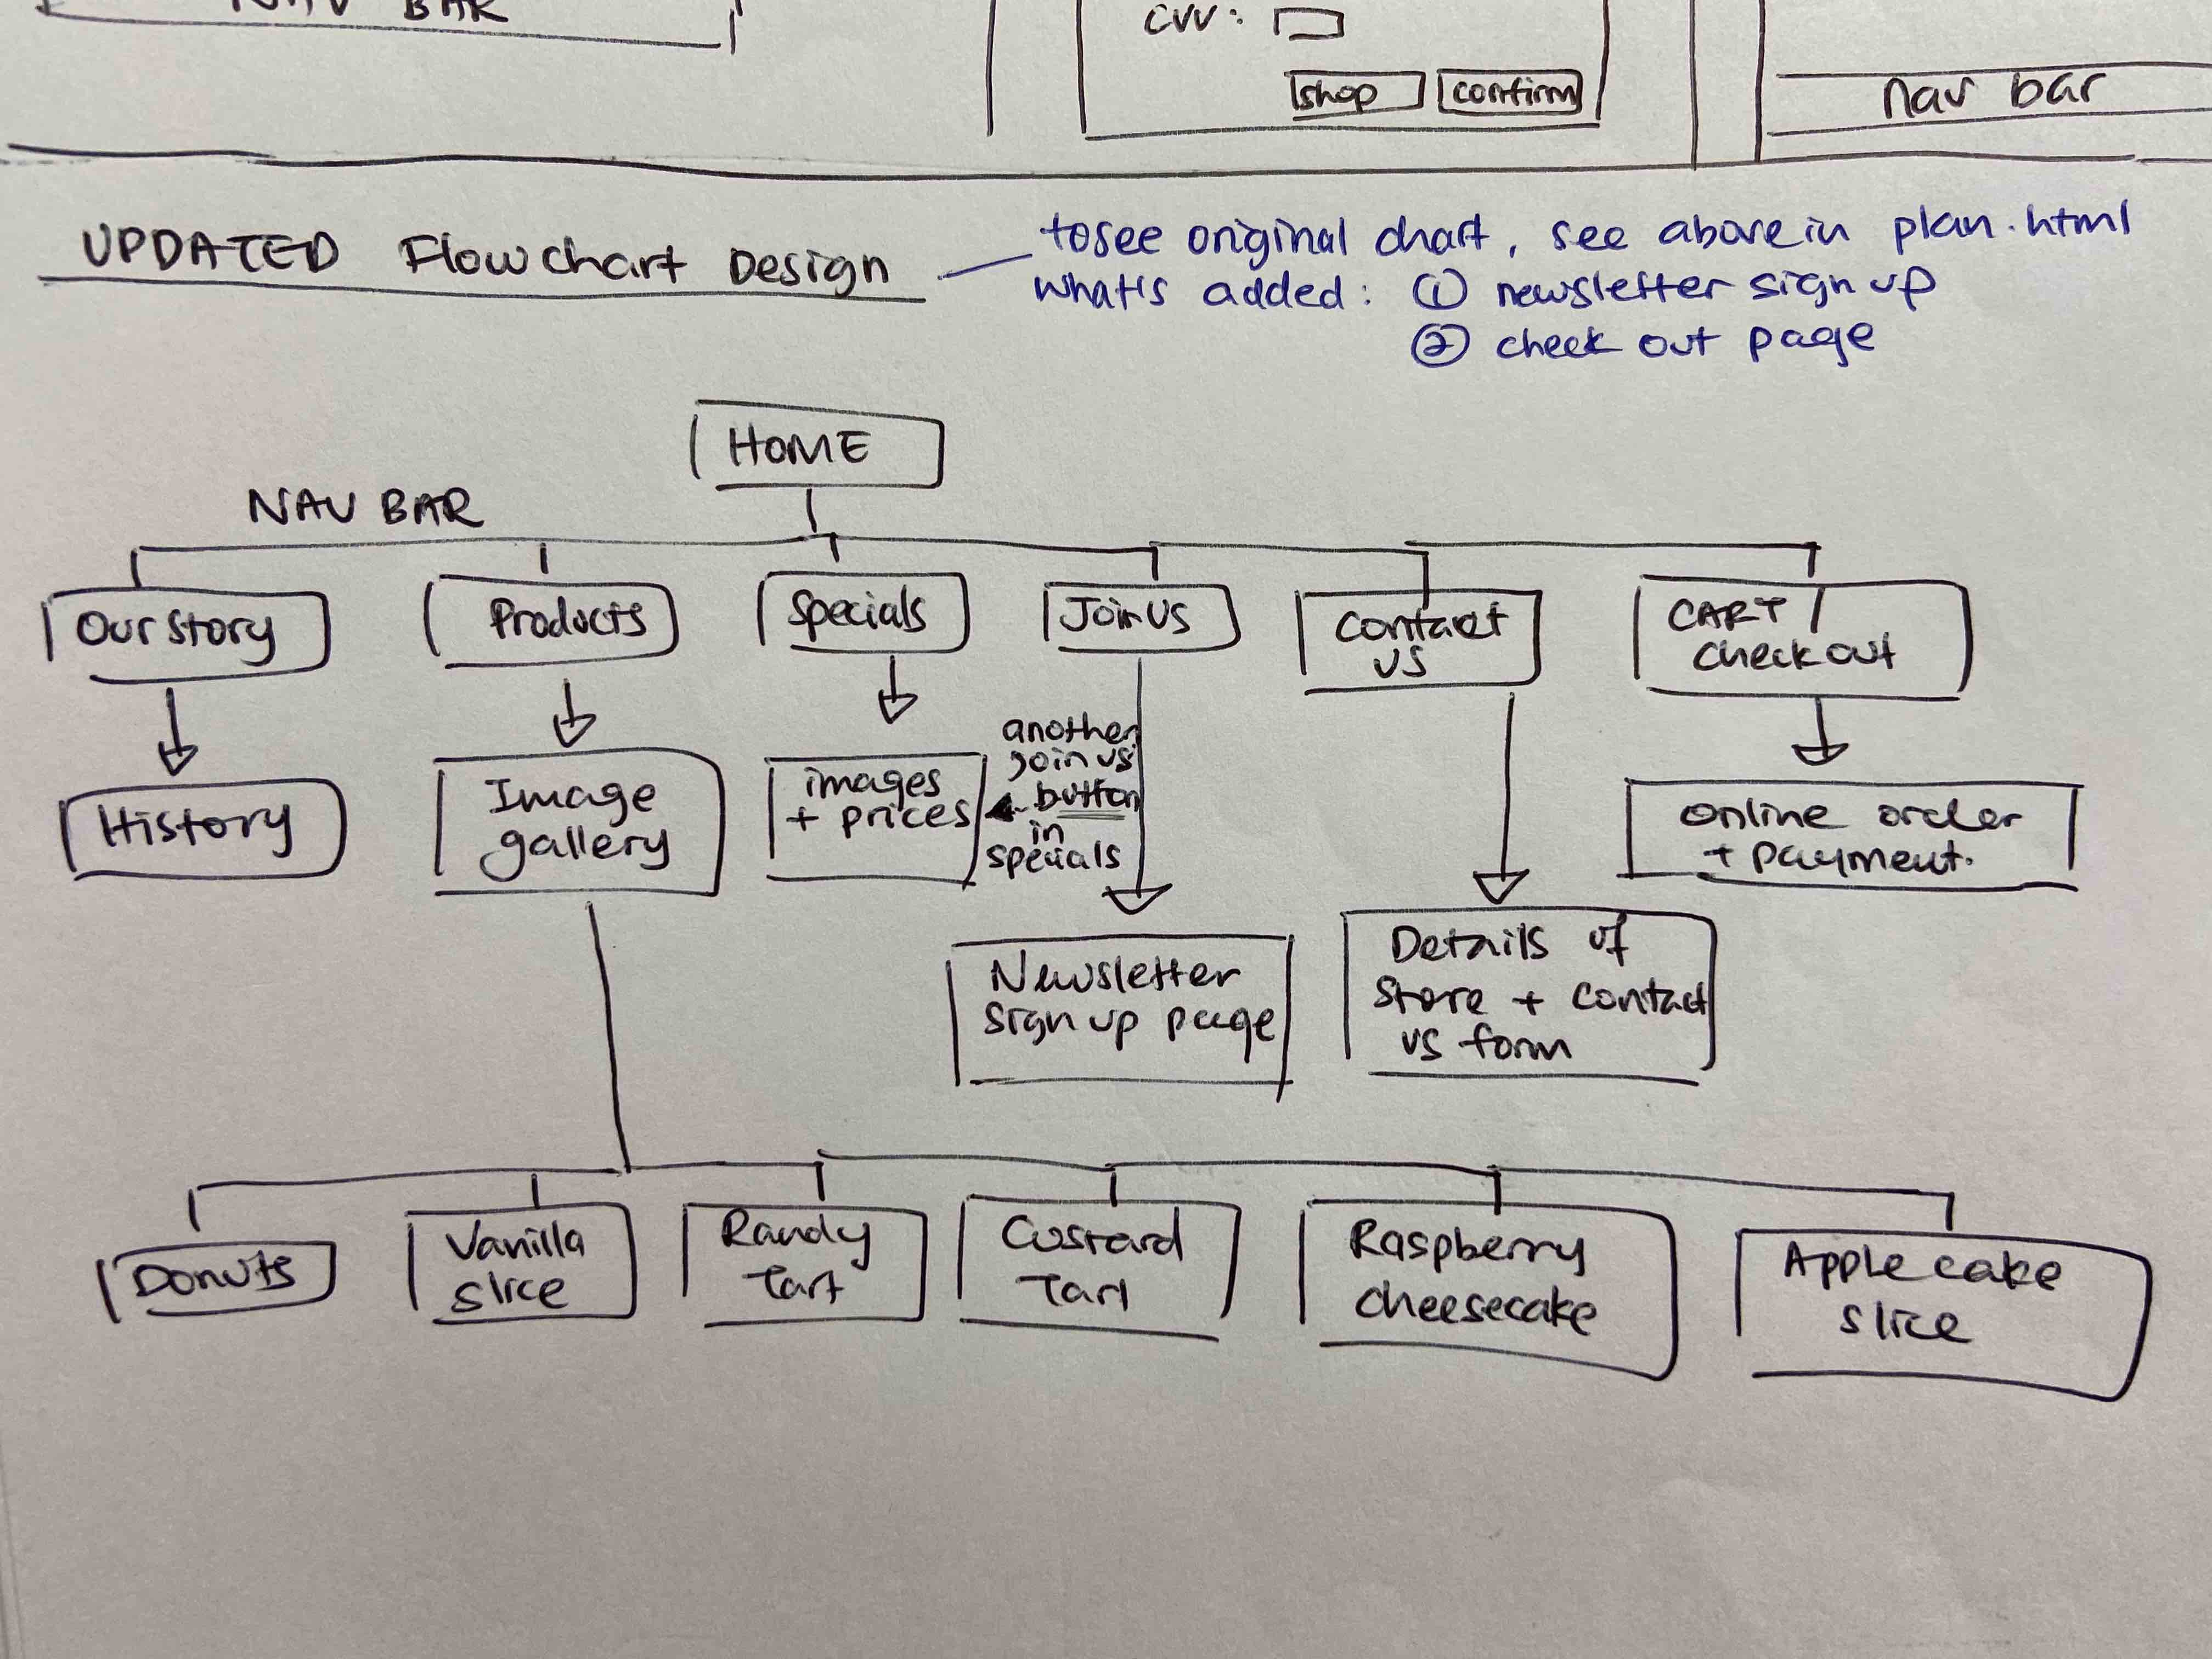 NAV BAR
CVV:
shop
confirm
nav bar
UPDATED Flowchart Design
to see original chart, see above in plan.html
what's added: ① newsletter sign up
② check out page
HOME
NAV BAR
Our story
Products
Specials
Join us
contact
us
CART /
check out
History
Image
gallery
images
+ prices
another
join us
button
in
specials
Newsletter
sign up page
Details of
store + contact
us form
online order
+ payment.
Donuts
Vanilla
slice
Randy
Tart
Custard
Tart
Raspberry
cheesecake
Apple cake
slice